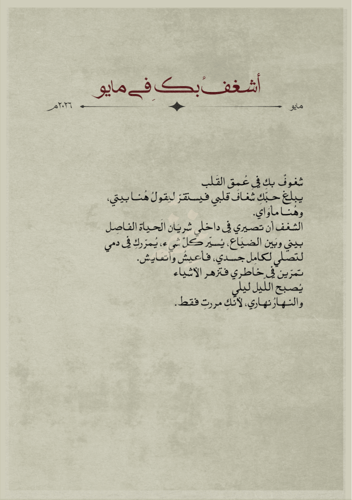 أشغفُ بكِ في مايو
مايو
٢٠٢٦م
شغوفٌ بكِ في عُمق القلب
يبلغ حبّك شغاف قلبي فيستقرّ ليقولَ هُنا بيتي،
وهُنا مأواي.
الشغف أن تصيري في داخلي شريان الحياة الفاصل
بيني وبين الضياع، يسيّر كلّ شيء، يُمرّركِ في دمي
لتصلي لكامل جسدي، فأعيش وأتعايش.
تمرّين في خاطري فتزهر الأشياء
يُصبح الليل ليلي
والنهارُ نهاري، لأنكِ مررتِ فقط.